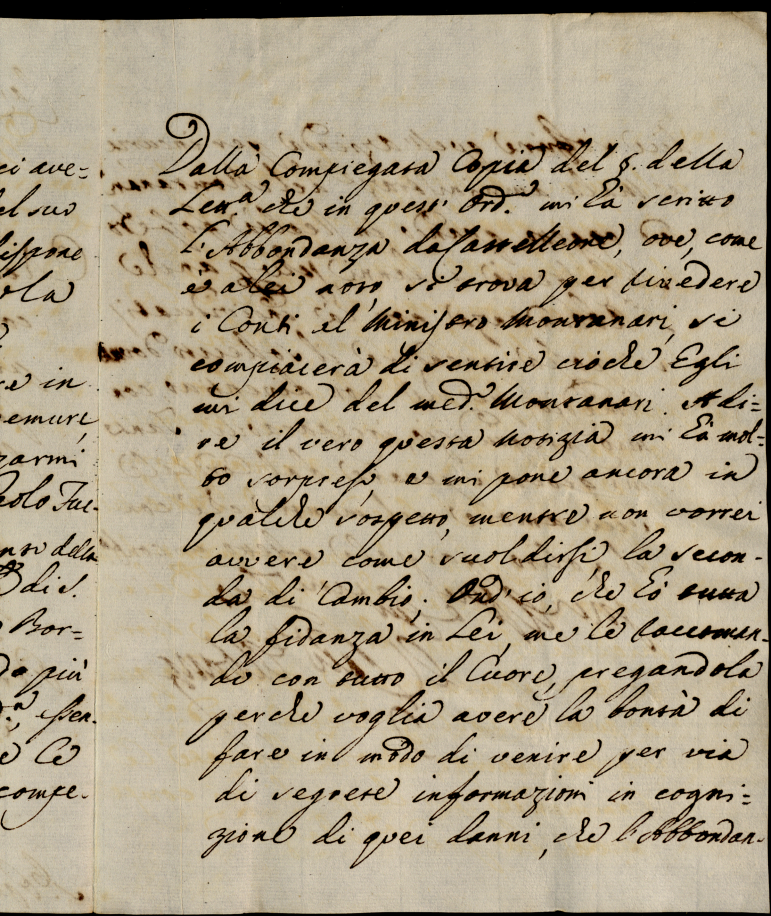 ci ave=
el suo
dispone
ola
re in
emure,
zarmi
aolo Fue-
nto della
di S.
Bor=
do più
essen.
e Le
compe.
Dalla Compiegata Copia del §. della
Lett.ª che in quest' Ord.º mi hà scritto
l'Abbondanza da Castelleone, ove, come
è a Lei noto, si trova per rivedere
i Conti al Ministro Montanari, si
compiacerà di sentire ciochè Egli
mi dice del med.º Montanari. A di=
re il vero questa notizia mi hà mol=
to sorpreso, e mi pone ancora in
qualche sospetto, mentre non vorrei
avvere come suol dirsi, la secon-
da di Cambio. Ond' io, che hò tutta
la fidanza in Lei, me Le raccoman-
do con tutto il Cuore, pregandola
perche voglia avere la bontà di
fare in modo di venire per via
di segrete informazioni in cogni=
zione di quei danni, che l'Abbondan-